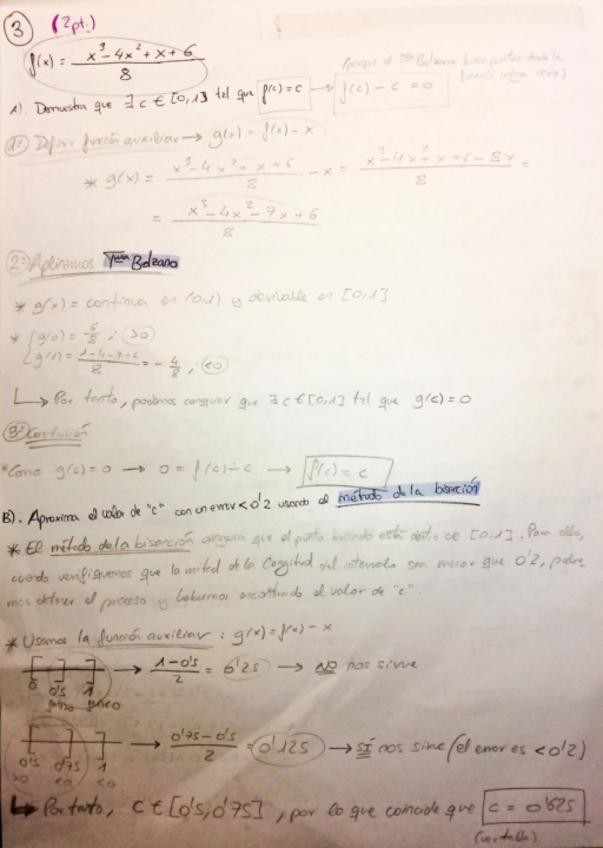 3 (2pt.)
f(x) = x³-4x²+x+6 / 8
(porque el Tma Bolzano busca puntos donde la función valga cero)
A). Demuestra que ∃ c ∈ [0,1] tal que f(c) = c → f(c) - c = 0
1º) Definir función auxiliar → g(x) = f(x) - x
* g(x) = x³-4x²+x+6 / 8 - x = x³-4x²+x+6-8x / 8 =
= x³-4x²-7x+6 / 8
2º) Aplicamos Tma Bolzano
* g(x) = continua en (0,1) y derivable en [0,1]
* { g(0) = 6/8 ; >0
{ g(1) = 1-4-7+6 / 8 = - 4/8 ; <0
↳ Por tanto, podemos asegurar que ∃ c ∈ [0,1] tal que g(c) = 0
3º) Conclusión
* Como g(c) = 0 → 0 = f(c) - c → f(c) = c
B). Aproxima el valor de "c" con un error < 0'2 usando el método de la bisección
* El método de la bisección asegura que el punto buscado está dentro de [0,1]. Para ello,
cuando verifiquemos que la mitad de la longitud del intervalo sea menor que 0'2, podre
mos detener el proceso y habremos encontrado el valor de "c".
* Usamos la función auxiliar : g(x) = f(x) - x
0 0'5 1 → 1-0'5 / 2 = 0'25 → NO nos sirve
0'5 0'75 1 → 0'75-0'5 / 2 = 0'125 → SÍ nos sirve (el error es < 0'2)
>0 <0 <0
↳ Por tanto, C ∈ [0'5, 0'75], por lo que coincide que c = 0'625
(ver tabla)